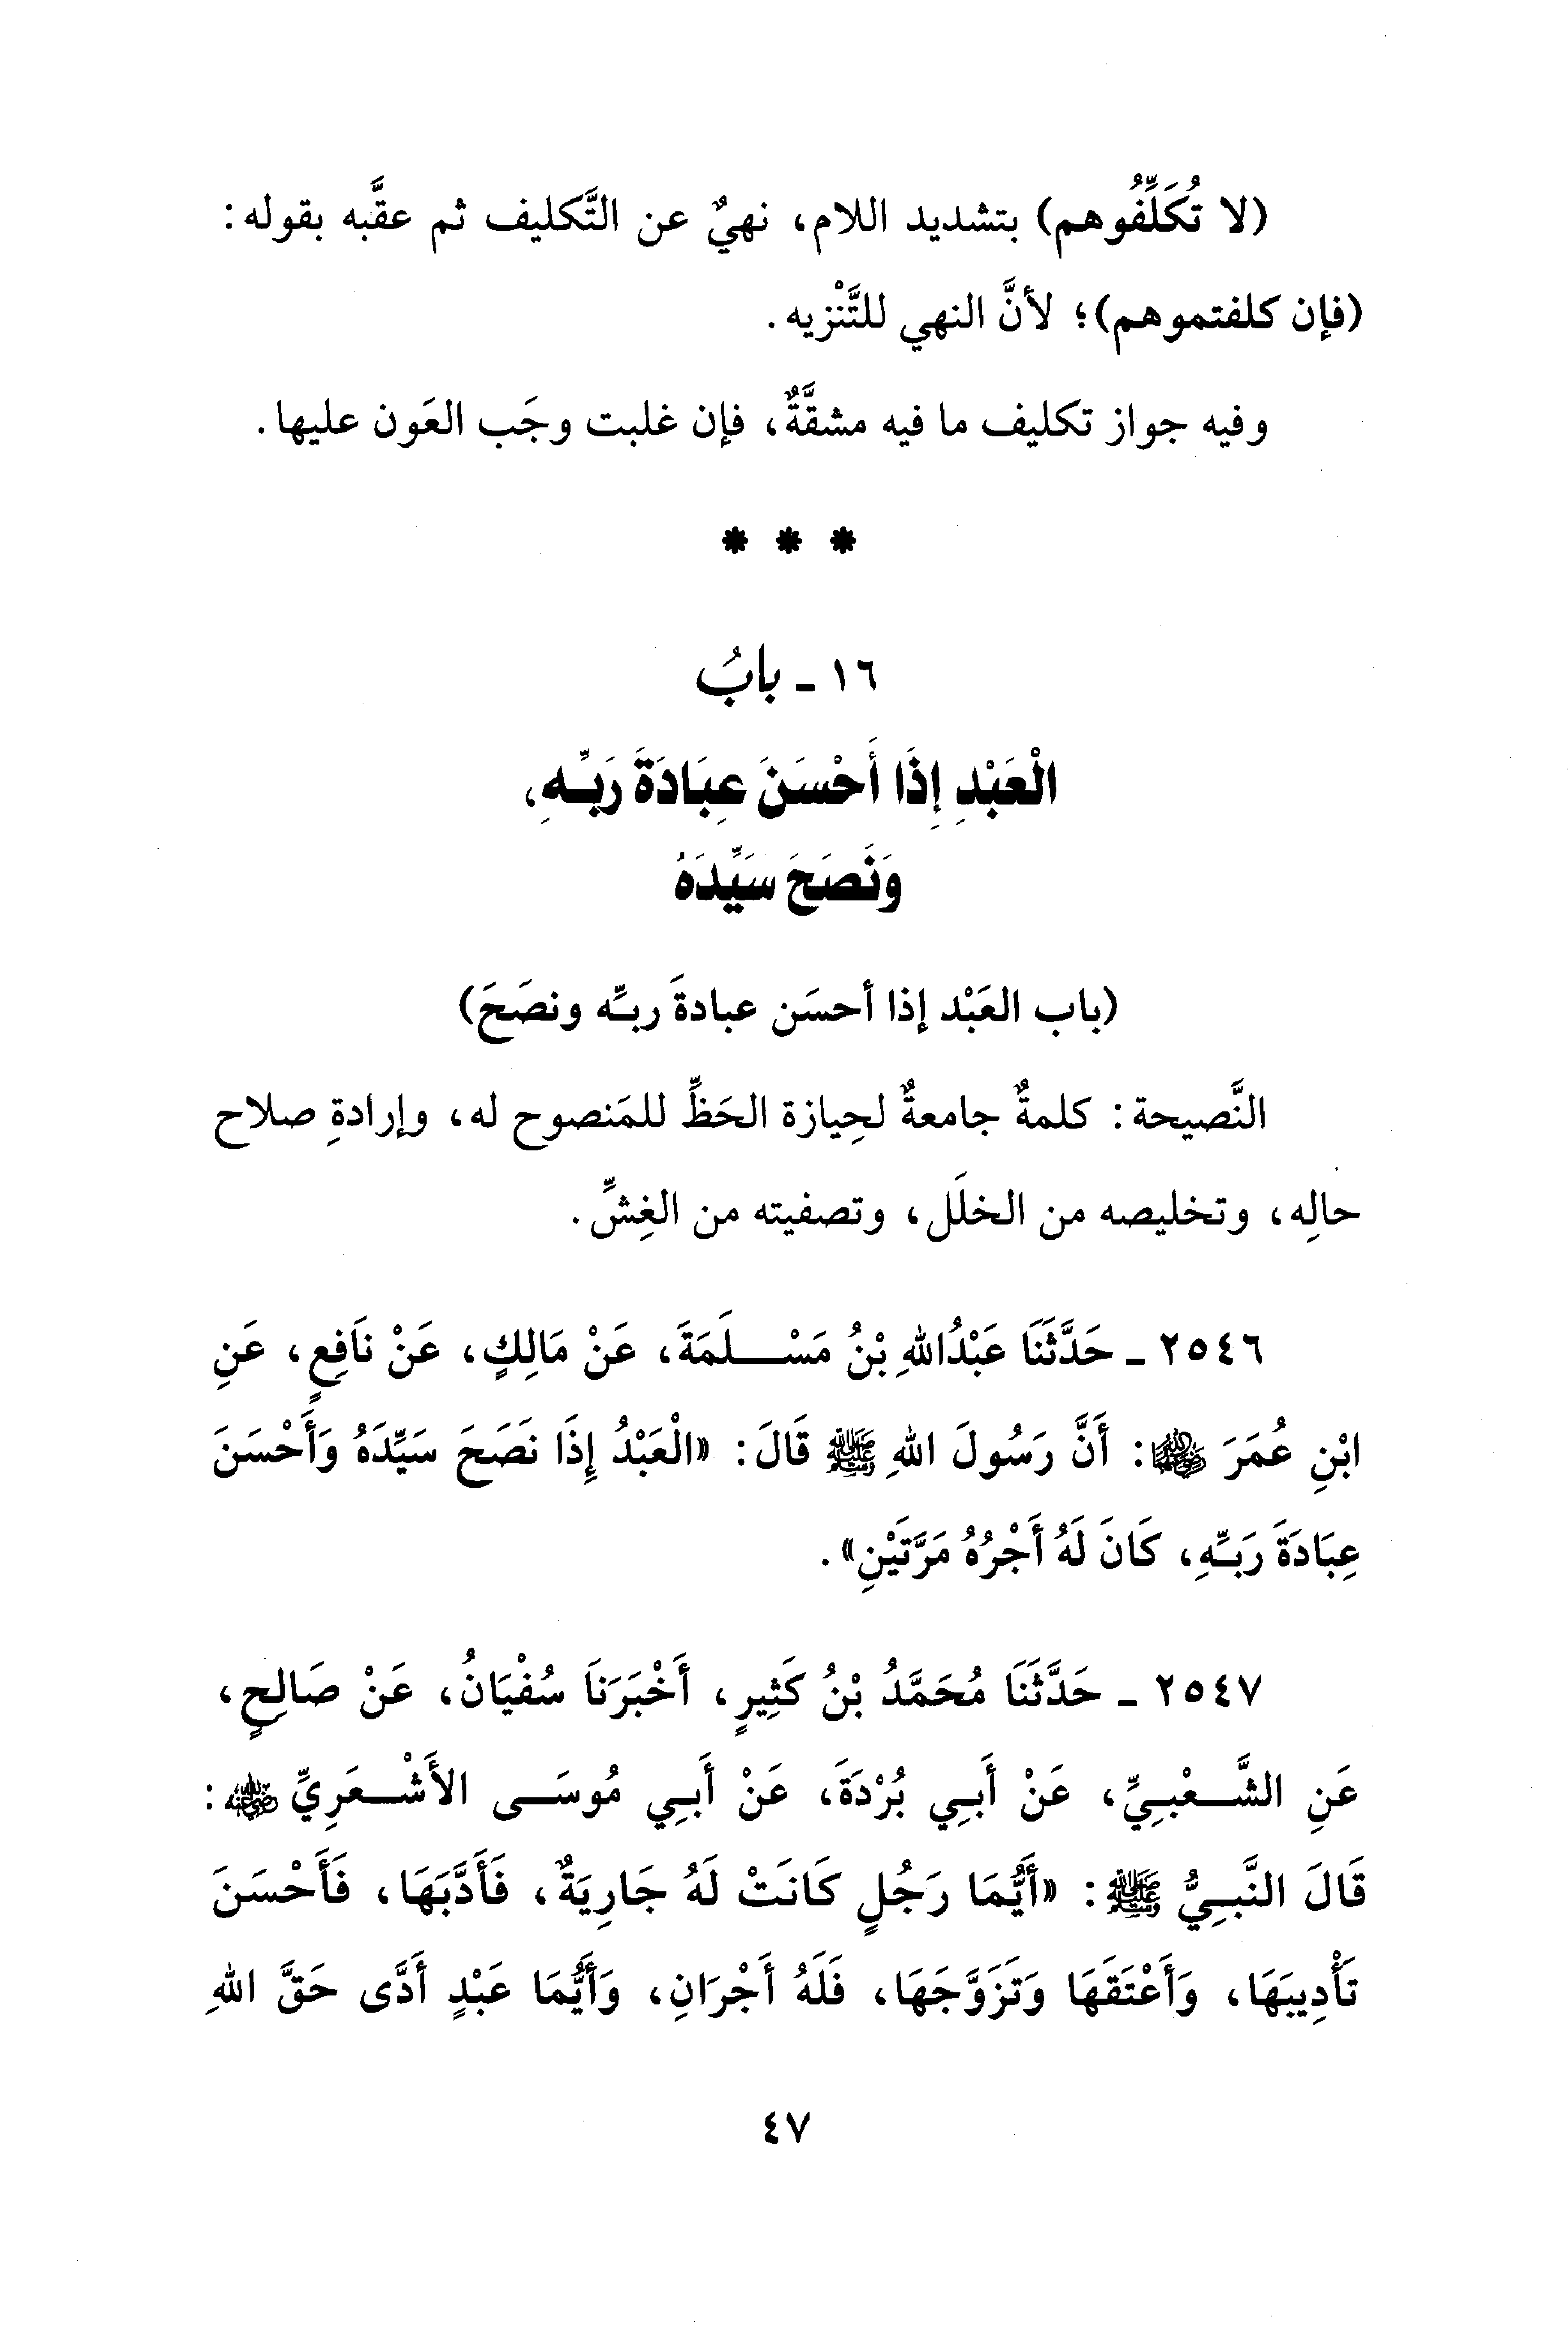 (لا تُكَلِّفُوهم) بتشديد اللام، نهيٌ عن التَّكليف ثم عقَّبه بقوله:
(فإن كلفتموهم)؛ لأنَّ النهي للتَّنْزيه.
وفيه جواز تكليف ما فيه مشقَّةٌ، فإن غلبت وجَب العَون عليها.
* * *
١٦ - بابُ
الْعَبْدِ إِذَا أَحْسَنَ عِبَادَةَ رَبِّهِ،
وَنَصَحَ سَيِّدَهُ
(باب العَبْد إذا أحسَن عبادةَ ربِّه ونصَحَ)
النَّصيحة: كلمةٌ جامعةٌ لحِيازة الحَظِّ للمَنصوح له، وإرادةِ صلاح
حالِه، وتخليصه من الخلَل، وتصفيته من الغِشِّ.
٢٥٤٦ - حَدَّثَنَا عَبْدُاللهِ بْنُ مَسْلَمَةَ، عَنْ مَالِكٍ، عَنْ نَافِعٍ، عَنِ
ابْنِ عُمَرَ رضي الله عنهما: أَنَّ رَسُولَ اللهِ ﷺ قَالَ: «الْعَبْدُ إِذَا نَصَحَ سَيِّدَهُ وَأَحْسَنَ
عِبَادَةَ رَبِّهِ، كَانَ لَهُ أَجْرُهُ مَرَّتَيْنِ».
٢٥٤٧ - حَدَّثَنَا مُحَمَّدُ بْنُ كَثِيرٍ، أَخْبَرَنَا سُفْيَانُ، عَنْ صَالِحٍ،
عَنِ الشَّعْبِيِّ، عَنْ أَبِي بُرْدَةَ، عَنْ أَبِي مُوسَى الأَشْعَرِيِّ رضي الله عنه:
قَالَ النَّبِيُّ ﷺ: «أَيُّمَا رَجُلٍ كَانَتْ لَهُ جَارِيَةٌ، فَأَدَّبَهَا، فَأَحْسَنَ
تَأْدِيبَهَا، وَأَعْتَقَهَا وَتَزَوَّجَهَا، فَلَهُ أَجْرَانِ، وَأَيُّمَا عَبْدٍ أَدَّى حَقَّ اللهِ
٤٧